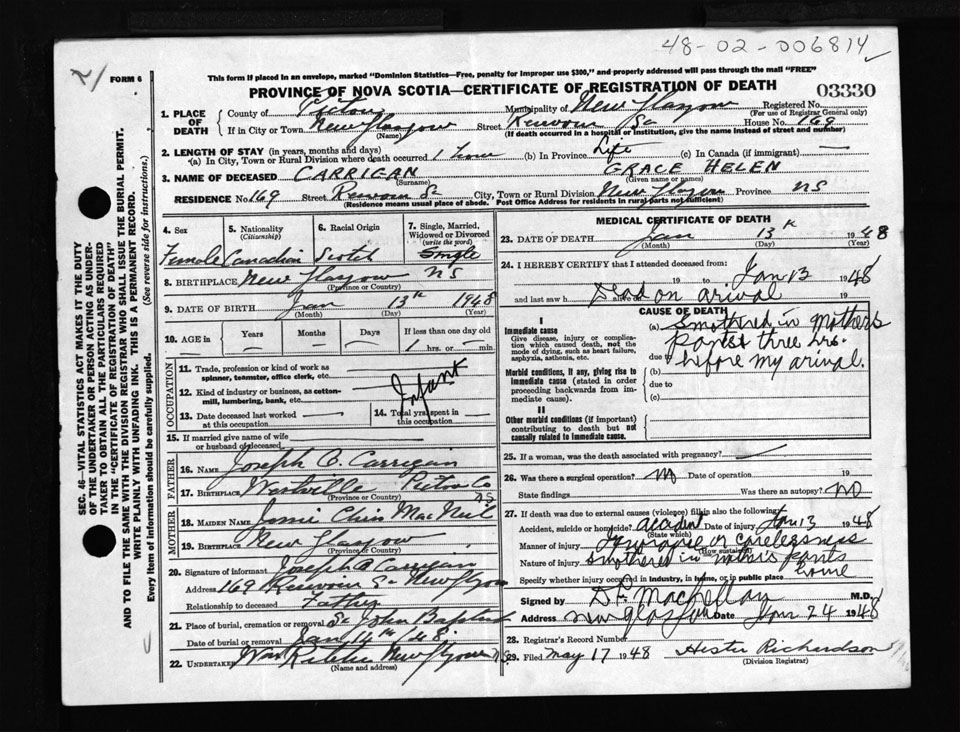 48-02-006814
FORM 6
This form if placed in an envelope, marked "Dominion Statistics—Free, penalty for improper use $300," and properly addressed will pass through the mail "FREE"
PROVINCE OF NOVA SCOTIA—CERTIFICATE OF REGISTRATION OF DEATH
03330
1. PLACE OF DEATH County of Pictou Municipality of New Glasgow Registered No.
(For use of Registrar General only)
If in City or Town New Glasgow Street St House No. 169
(Name) (If death occurred in a hospital or institution, give the name instead of street and number)
2. LENGTH OF STAY (in years, months and days)
(a) In City, Town or Rural Division where death occurred 1 hour (b) In Province Life (c) In Canada (if immigrant) —
3. NAME OF DECEASED CARRIGAN GRACE HELEN
(Surname) (Given name or names)
RESIDENCE No. 169 Street St City, Town or Rural Division New Glasgow Province NS
(Residence means usual place of abode. Post Office Address for residents in rural parts not sufficient)
4. Sex 5. Nationality 6. Racial Origin 7. Single, Married, Widowed or Divorced
(Citizenship) (write the word)
Female Canadian Scotch Single
8. BIRTHPLACE New Glasgow NS
(Province or Country)
9. DATE OF BIRTH Jan 13th 1948
(Month) (Day) (Year)
10. AGE in Years Months Days If less than one day old
— — — 1 hrs. or — min.
OCCUPATION
11. Trade, profession or kind of work as spinner, teamster, office clerk, etc.
12. Kind of industry or business, as cotton-mill, lumbering, bank, etc.
Infant
13. Date deceased last worked at this occupation —
14. Total yrs. spent in this occupation
15. If married give name of wife or husband of deceased —
FATHER
16. NAME Joseph Carrigan
17. BIRTHPLACE Westville Pictou Co NS
(Province or Country)
MOTHER
18. MAIDEN NAME MacNeil
19. BIRTHPLACE New Glasgow
(Province or Country)
20. Signature of informant Joseph Carrigan
Address 169 St New Glasgow
Relationship to deceased Father
21. Place of burial, cremation or removal St John Baptist
Date of burial or removal Jan 14th/48
22. UNDERTAKER New Glasgow NS
(Name and address)
MEDICAL CERTIFICATE OF DEATH
23. DATE OF DEATH Jan 13th 1948
(Month) (Day) (Year)
24. I HEREBY CERTIFY that I attended deceased from:
19 to Jan 13 1948
and last saw h alive on Dead on arival 19
CAUSE OF DEATH
I
Immediate cause
Give disease, injury or complication which caused death, not the mode of dying, such as heart failure, asphyxia, asthenia, etc.
(a) Smothered in Mothers
pants three hrs.
due to before my arival.
Morbid conditions, if any, giving rise to immediate cause (stated in order proceeding backwards from immediate cause).
(b)
due to
(c)
II
Other morbid conditions (if important) contributing to death but not causally related to immediate cause.
25. If a woman, was the death associated with pregnancy?
26. Was there a surgical operation? no Date of operation 19
State findings Was there an autopsy? NO
27. If death was due to external causes (violence) fill in also the following:
Accident, suicide or homicide? accident Date of injury Jan 13 1948
(State which)
Manner of injury or carelessness
(How sustained)
Nature of injury smothered in mothers pants
Specify whether injury occurred in industry, in home, or in public place home
Signed by MacLellan M.D.
Address New Glasgow Date Jan 24 1948
28. Registrar's Record Number
29. Filed May 17 1948 Hester Richardson
(Division Registrar)
SEC. 46—VITAL STATISTICS ACT MAKES IT THE DUTY
OF THE UNDERTAKER OR PERSON ACTING AS UNDER-
TAKER TO OBTAIN ALL THE PARTICULARS REQUIRED
IN THE "CERTIFICATE OF REGISTRATION OF DEATH"
AND TO FILE THE SAME WITH THE DIVISION REGISTRAR WHO SHALL ISSUE THE BURIAL PERMIT.
WRITE PLAINLY WITH UNFADING INK. THIS IS A PERMANENT RECORD.
Every item of information should be carefully supplied. (See reverse side for instructions.)